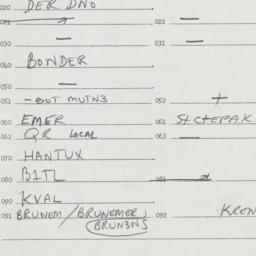 020 DER DNO
021 022 —
030 — 031 —
040 BONDER
050 —
051 -BOT MUTN3 052 +
060 EMER 061 St CtEPAK
062 QR LOCAL 063 —
070 HANTUX
080 B1TL 081
090 KVAL
091 BRUNEM / BRUNEMER, 092 KREN
BRUN3NS